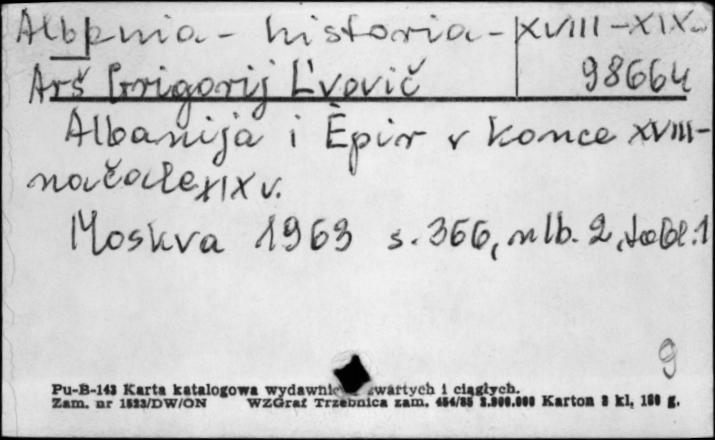 Albania - historia - XVIII - XIX w.
Arš Grigorij L'vovič 98664
Albanija i Èpir v konce XVIII -
načale XIX v.
Moskva 1963 s. 366, nlb. 2, tabl. 1
9
Pu-B-143 Karta katalogowa wydawnic zwartych i ciągłych.
Zam. nr 1523/DW/ON WZGraf Trzebnica zam. 454/85 2.900.000 Karton 3 kl, 180 g.